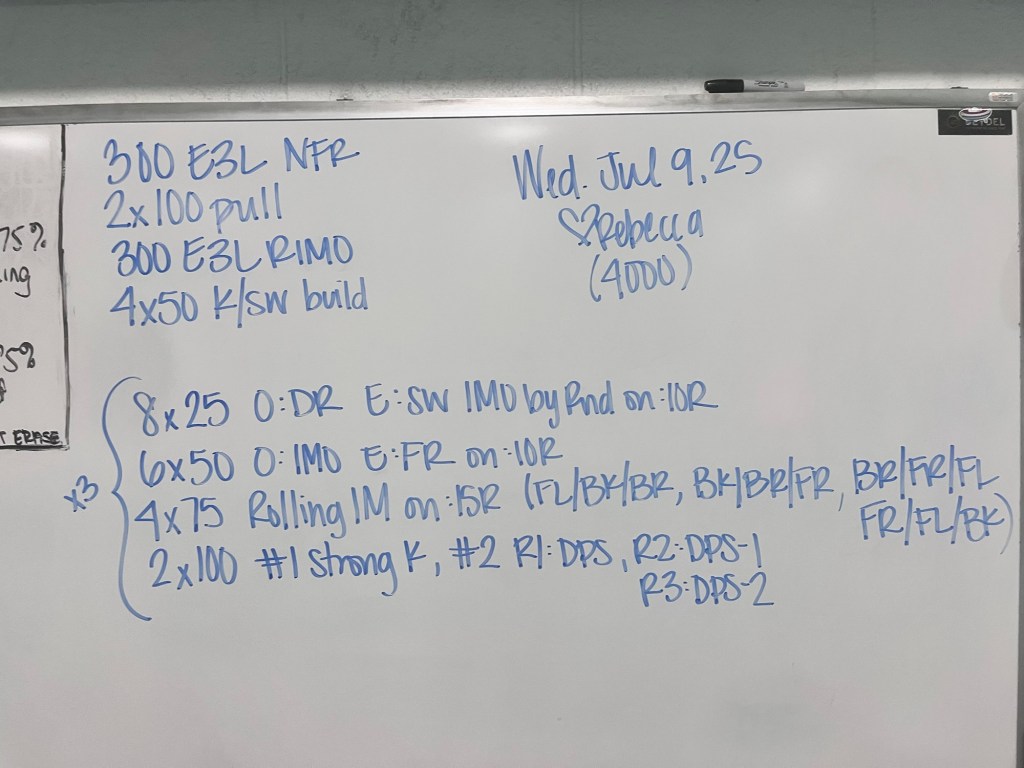 300 E3L NFR
2x100 pull
300 E3L RIMO
4x50 K/SW build
Wed. Jul 9, 25
♡Rebecca
(4000)
x3
8x25 O:DR E:SW IMO by Rnd on :10R
6x50 O:IMO E:FR on :10R
4x75 Rolling IM on :15R (FL/BK/BR, BK/BR/FR, BR/FR/FL
FR/FL/BK)
2x100 #1 Strong K, #2 R1:DPS, R2:DPS-1
R3:DPS-2
75%
ing
5%
ERASE